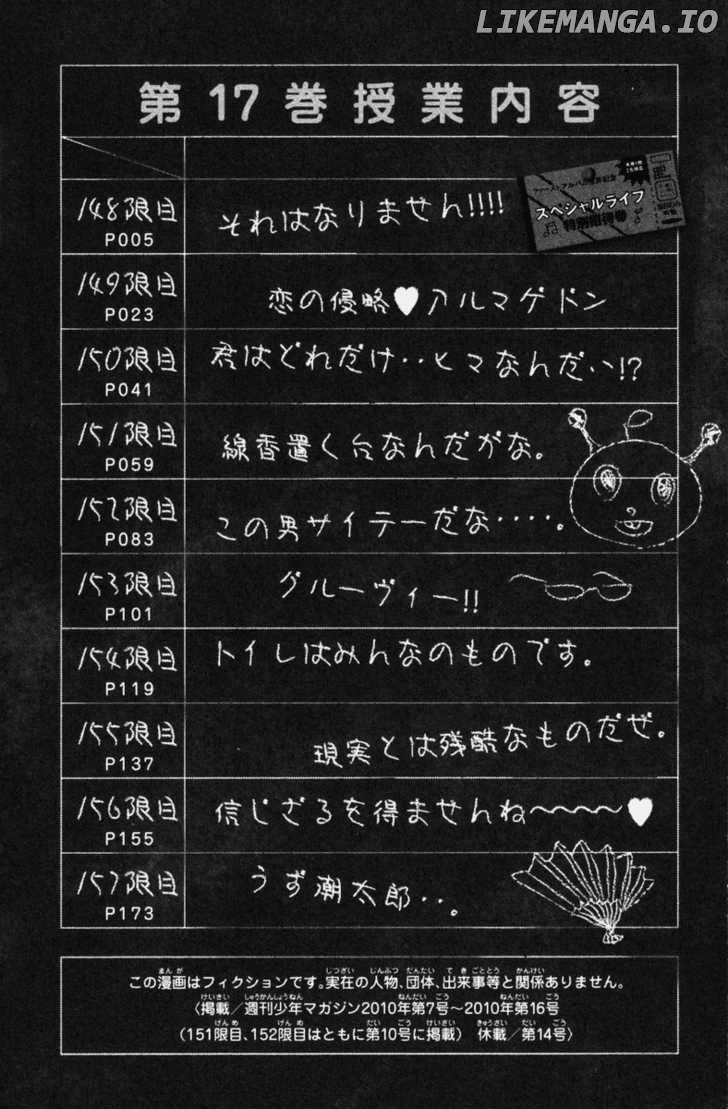 LIKEMANGA.IO
第17巻授業内容
148限目
P005
それはなりません!!!!
スペシャルライブ
特別招待券
149限目
P023
恋の侵略♥アルマゲドン
150限目
P041
君はどれだけ‥ヒマなんだい!?
151限目
P059
線香置く台なんだがな。
152限目
P083
この男サイテーだな‥‥。
153限目
P101
グルーヴィー!!
154限目
P119
トイレはみんなのものです。
155限目
P137
現実とは残酷なものだぜ。
156限目
P155
信じざるを得ませんね〜〜〜〜♥
157限目
P173
うず潮太郎‥。
この漫画はフィクションです。実在の人物、団体、出来事等と関係ありません。
〈掲載／週刊少年マガジン2010年第7号〜2010年第16号
(151限目、152限目はともに第10号に掲載)　休載／第14号〉